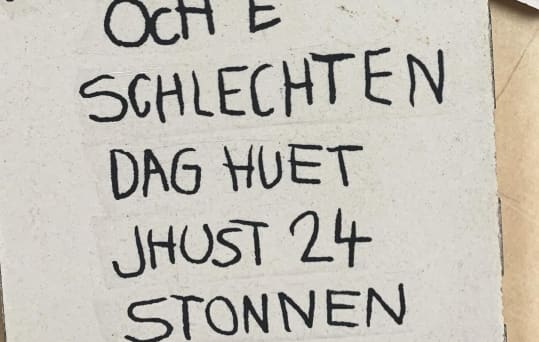 OCH E
SCHLECHTEN
DAG HUET
JHUST 24
STONNEN